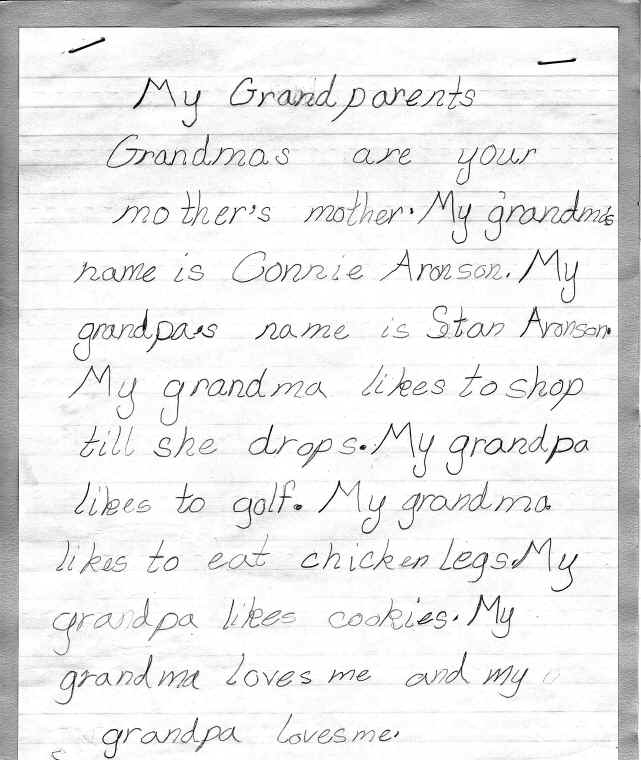 My Grandparents
Grandmas are your
mother's mother. My grandma's
name is Connie Aronson. My
grandpa's name is Stan Aronson.
My grandma likes to shop
till she drops. My grandpa
likes to golf. My grandma
likes to eat chicken legs. My
grandpa likes cookies. My
grandma loves me and my
grandpa loves me.